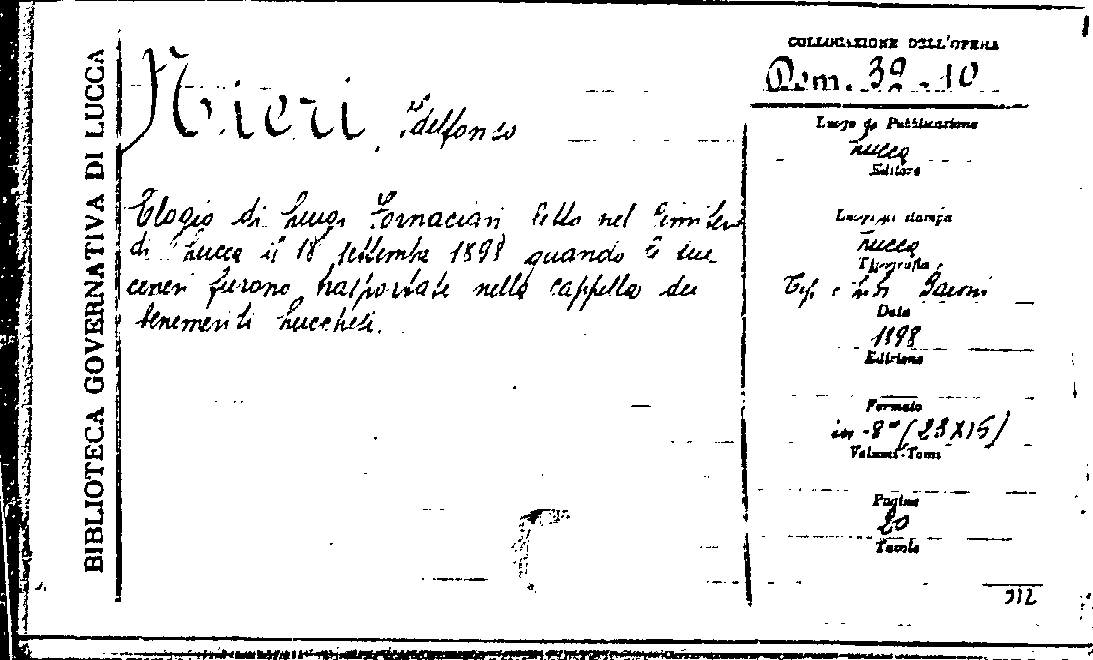 BIBLIOTECA GOVERNATIVA DI LUCCA
Nieri, Idelfonso
Elogio di Luigi Fornaciari letto nel Cimitero
di Lucca il 18 settembre 1898 quando le sue
ceneri furono trasportate nella cappella dei
benemeriti Lucchesi.
COLLOCAZIONE DELL'OPERA
Dem. 39 - 10
Luogo di Pubblicazione
Lucca
Editore
Luogo di stampa
Lucca
Tipografia
Tip. Baroni
Data
1898
Edizione
Formato
in -8° (23X15)
Volumi-Tomi
Pagine
20
Tavole
312